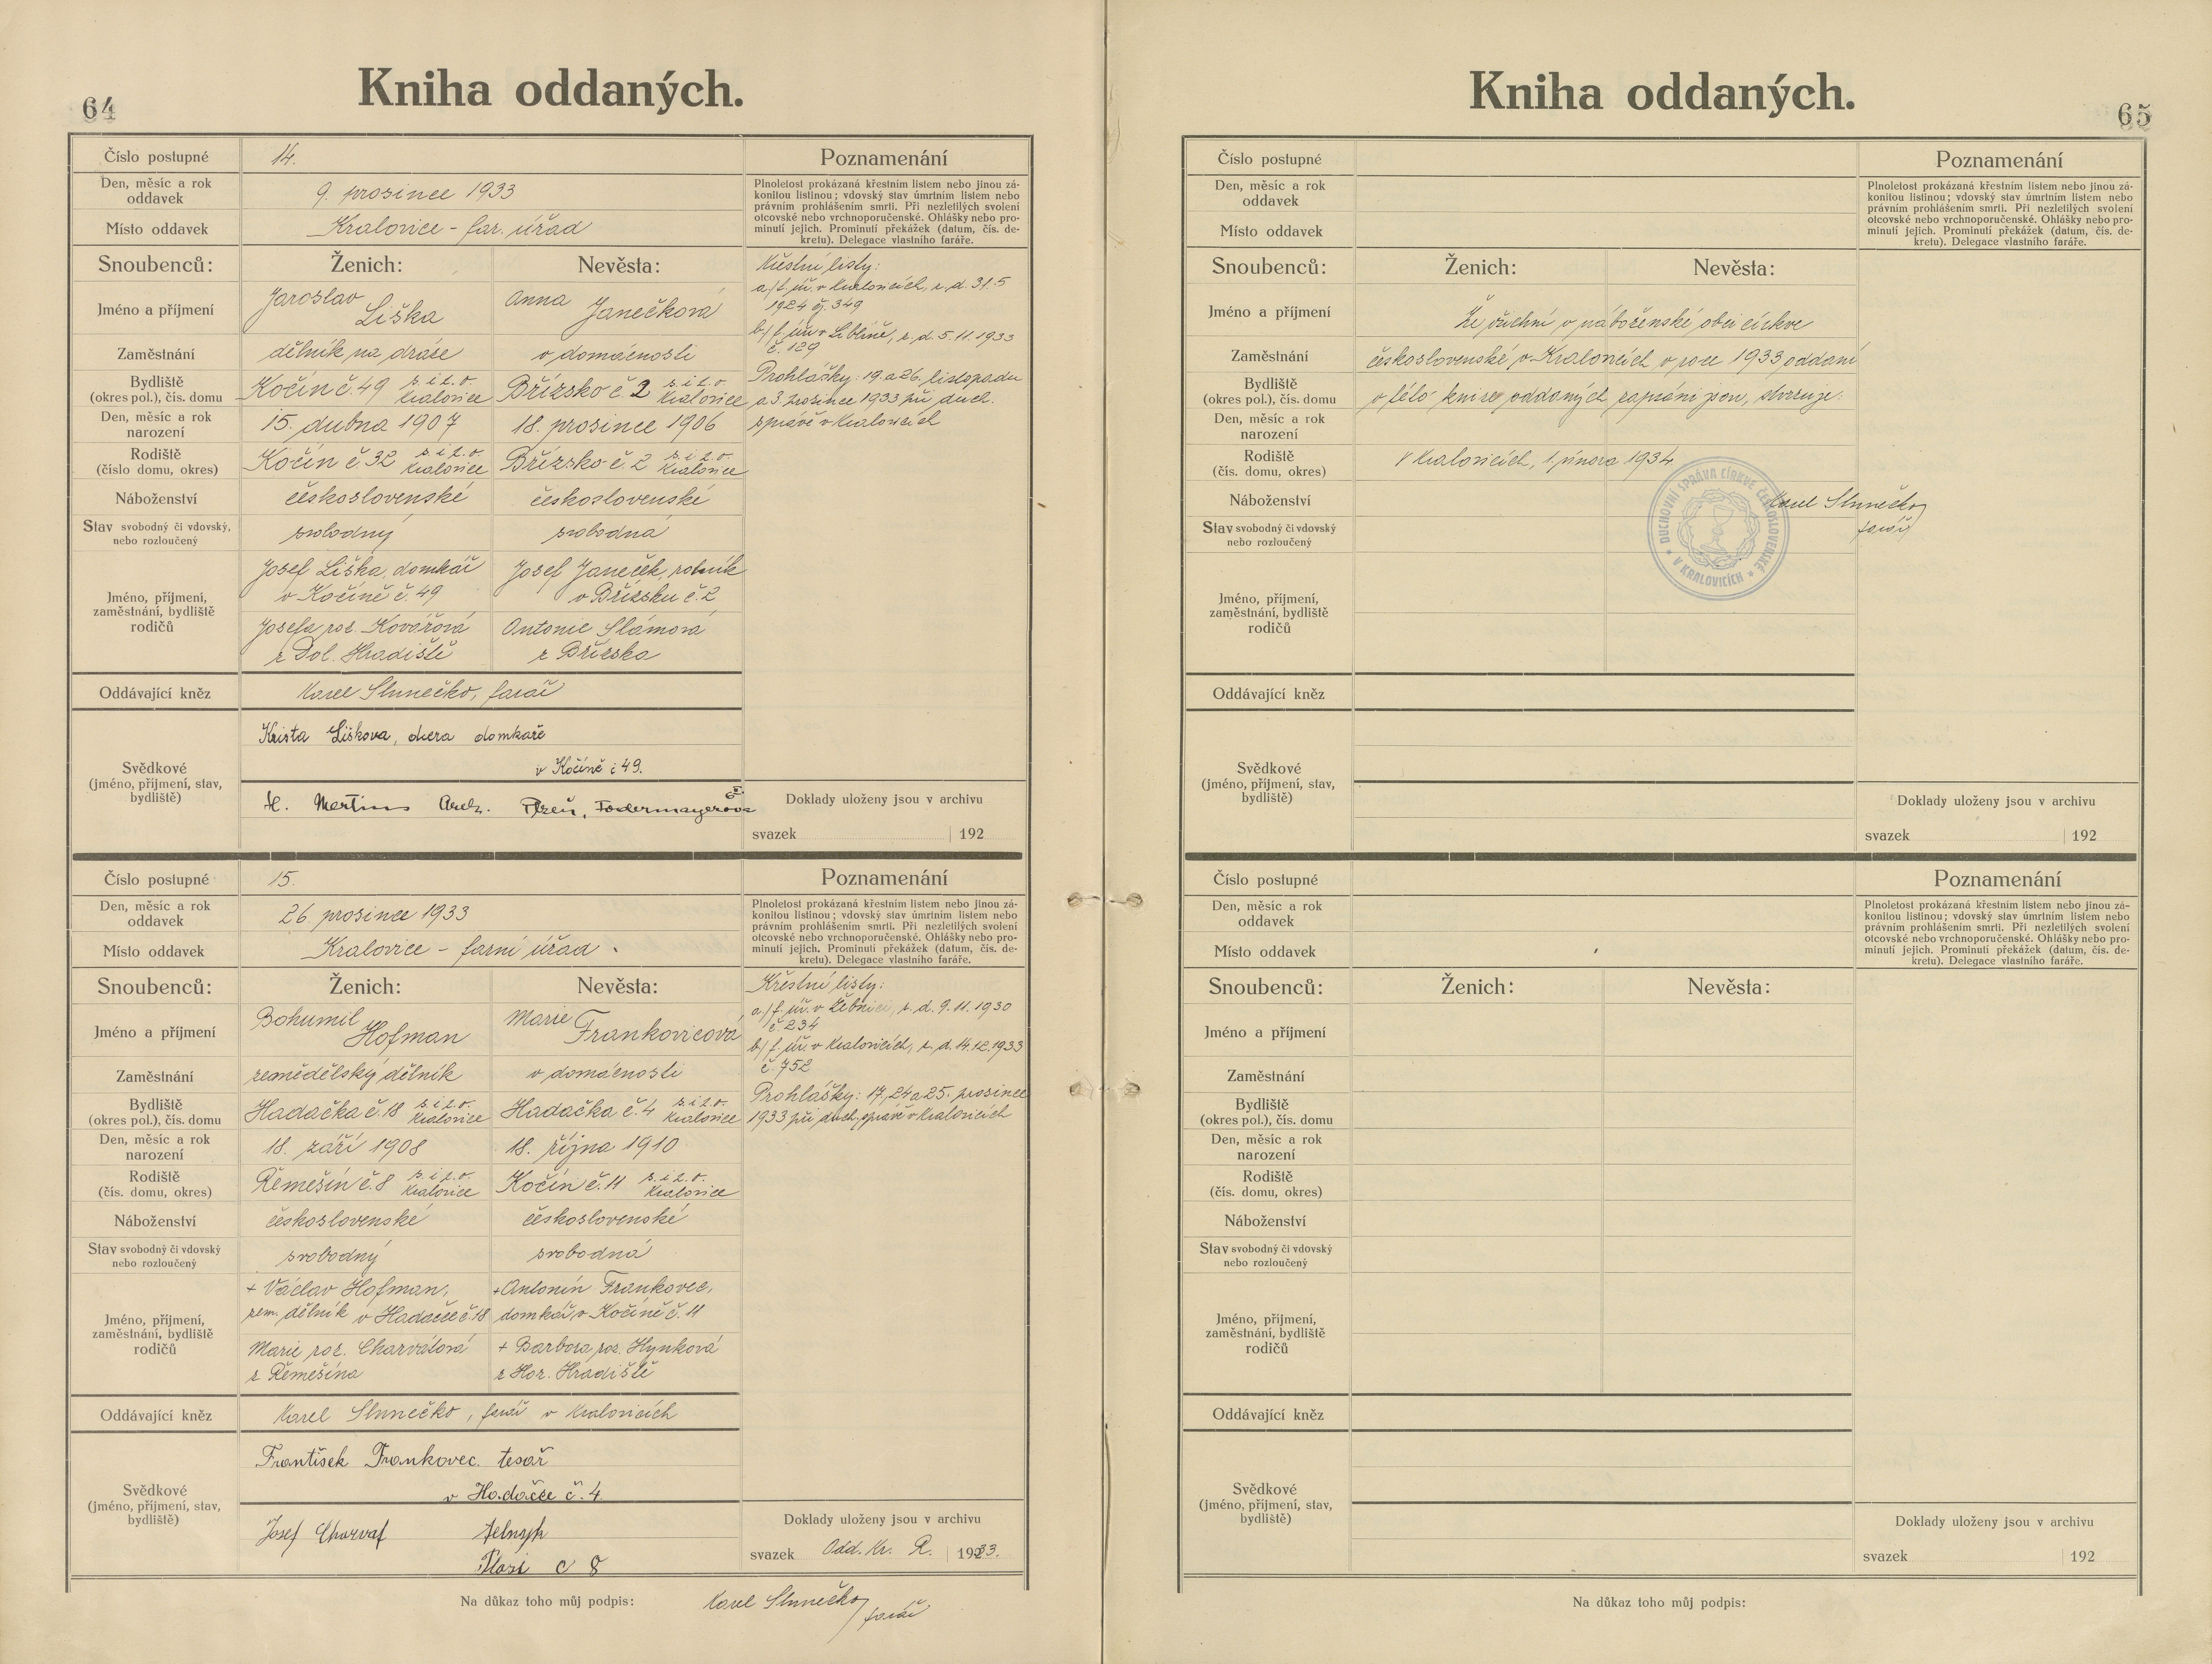 64
Kniha oddaných.
Číslo postupné 14. Poznamenání
Den, měsíc a rok oddavek 9. prosince 1933
Místo oddavek Kralovice - far. úřad
Plnoletost prokázaná křestním listem nebo jinou zá-
konitou listinou; vdovský stav úmrtním listem nebo
právním prohlášením smrti. Při nezletilých svolení
otcovské nebo vrchnoporučenské. Ohlášky nebo pro-
minutí jejich. Prominutí překážek (datum, čís. de-
kretu). Delegace vlastního faráře.
Snoubenců: Ženich: Nevěsta:
Jméno a příjmení Jaroslav Liška Anna Janečková
Zaměstnání dělník na dráze v domácnosti
Bydliště (okres pol.), čís. domu Kočín č. 49 s. i t. o. Kralovice Břízsko č. 2 s. i t. o. Kralovice
Den, měsíc a rok narození 15. dubna 1907 18. prosince 1906
Rodiště (číslo domu, okres) Kočín č. 32 s. i t. o. Kralovice Břízsko č. 2 s. i t. o. Kralovice
Náboženství československé československé
Stav svobodný či vdovský, nebo rozloučený svobodný svobodná
Jméno, příjmení, zaměstnání, bydliště rodičů
Josef Liška, domkář
v Kočíně č. 49
Josefa roz. Kovářová
z Dol. Hradiště
Josef Janeček, rolník
v Břízsku č. 2
Antonie Slámová
z Břízska
Křestní listy:
a/ f. úř. v Kralovicích, z. d. 31.5
1924 čj. 349
b/ f. úř. v Liblíně, z. d. 5. 11. 1933
č. 129
Prohlášky: 19. a 26. listopadu
a 3. prosince 1933 při duch.
správě v Kralovicích
Oddávající kněz Karel Slunečko, farář
Svědkové (jméno, příjmení, stav, bydliště)
Krista Liškova, dcera domkaře
v Kočíně č 49.
Plzeň, Fodermayerova
Doklady uloženy jsou v archivu
svazek 192
Číslo postupné 15. Poznamenání
Den, měsíc a rok oddavek 26. prosince 1933
Místo oddavek Kralovice - farní úřad
Plnoletost prokázaná křestním listem nebo jinou zá-
konitou listinou; vdovský stav úmrtním listem nebo
právním prohlášením smrti. Při nezletilých svolení
otcovské nebo vrchnoporučenské. Ohlášky nebo pro-
minutí jejich. Prominutí překážek (datum, čís. de-
kretu). Delegace vlastního faráře.
Snoubenců: Ženich: Nevěsta:
Jméno a příjmení Bohumil Hofman Marie Frankovicová
Zaměstnání zemědělský dělník v domácnosti
Bydliště (okres pol.), čís. domu Hadačka č. 18 s. i t. o. Kralovice Hadačka č. 4 s. i t. o. Kralovice
Den, měsíc a rok narození 18. září 1908 18. října 1910
Rodiště (čís. domu, okres) Řemešín č. 8 s. i t. o. Kralovice Kočín č. 11 s. i t. o. Kralovice
Náboženství československé československé
Stav svobodný či vdovský nebo rozloučený svobodný svobodná
Jméno, příjmení, zaměstnání, bydliště rodičů
+ Václav Hofman,
zem. dělník v Hadačce č. 18
Marie roz. Charvátová
z Řemešína
+ Antonín Frankovec,
domkář v Kočíně č. 11
+ Barbora roz. Hynková
z Hor. Hradiště
Křestní listy:
a/ f. úř. v Žebnici, z. d. 9. 11. 1930
č. 234
b/ f. úř. v Kralovicích, z. d. 14.12.1933
č. 752
Prohlášky: 17, 24 a 25. prosince
1933 při duch. správě v Kralovicích
Oddávající kněz Karel Slunečko, farář v Kralovicích
Svědkové (jméno, příjmení, stav, bydliště)
František Frankovec. tesař
v Hadačce č. 4
Josef Charvaf
Plasi c 8
Doklady uloženy jsou v archivu
svazek Odd. Kr. R. 1933.
Na důkaz toho můj podpis: Karel Slunečko
farář
65
Kniha oddaných.
Číslo postupné Poznamenání
Den, měsíc a rok oddavek
Místo oddavek
Plnoletost prokázaná křestním listem nebo jinou zá-
konitou listinou; vdovský stav úmrtním listem nebo
právním prohlášením smrti. Při nezletilých svolení
otcovské nebo vrchnoporučenské. Ohlášky nebo pro-
minutí jejich. Prominutí překážek (datum, čís. de-
kretu). Delegace vlastního faráře.
Snoubenců: Ženich: Nevěsta:
Jméno a příjmení
Že všichni v náboženské obci církve
Zaměstnání
československé v Kralovicích v roce 1933 oddaní
Bydliště (okres pol.), čís. domu
v této knize oddaných zapsáni jsou, stvrzuje:
Den, měsíc a rok narození
Rodiště (čís. domu, okres)
V Kralovicích, 1. února 1934.
Náboženství
Karel Slunečko
farář
DUCHOVNÍ SPRÁVA CÍRKVE ČESKOSLOVENSKÉ V KRALOVICÍCH
Stav svobodný či vdovský nebo rozloučený
Jméno, příjmení, zaměstnání, bydliště rodičů
Oddávající kněz
Svědkové (jméno, příjmení, stav, bydliště)
Doklady uloženy jsou v archivu
svazek 192
Číslo postupné Poznamenání
Den, měsíc a rok oddavek
Místo oddavek
Plnoletost prokázaná křestním listem nebo jinou zá-
konitou listinou; vdovský stav úmrtním listem nebo
právním prohlášením smrti. Při nezletilých svolení
otcovské nebo vrchnoporučenské. Ohlášky nebo pro-
minutí jejich. Prominutí překážek (datum, čís. de-
kretu). Delegace vlastního faráře.
Snoubenců: Ženich: Nevěsta:
Jméno a příjmení
Zaměstnání
Bydliště (okres pol.), čís. domu
Den, měsíc a rok narození
Rodiště (čís. domu, okres)
Náboženství
Stav svobodný či vdovský nebo rozloučený
Jméno, příjmení, zaměstnání, bydliště rodičů
Oddávající kněz
Svědkové (jméno, příjmení, stav, bydliště)
Doklady uloženy jsou v archivu
svazek 192
Na důkaz toho můj podpis: